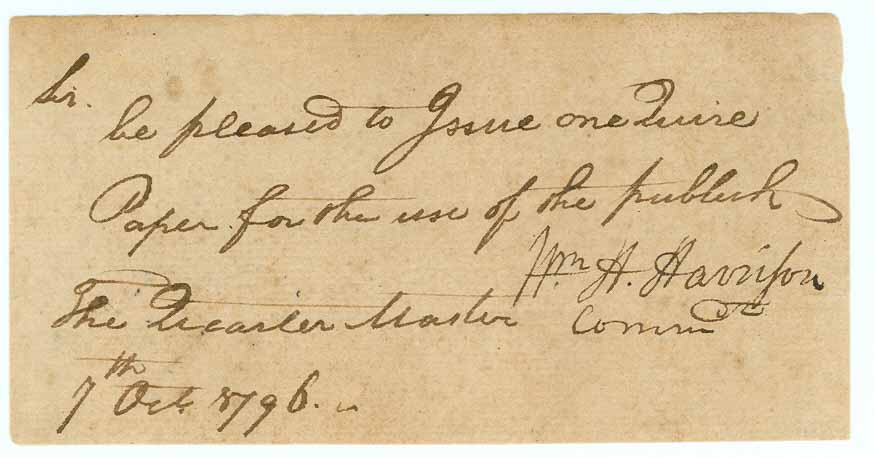 Sir.
be pleased to Issue one Quire
Paper for the use of the publick
Wm. H. Harrison
The Quarter Master Commdt
7th Oct. 1796.